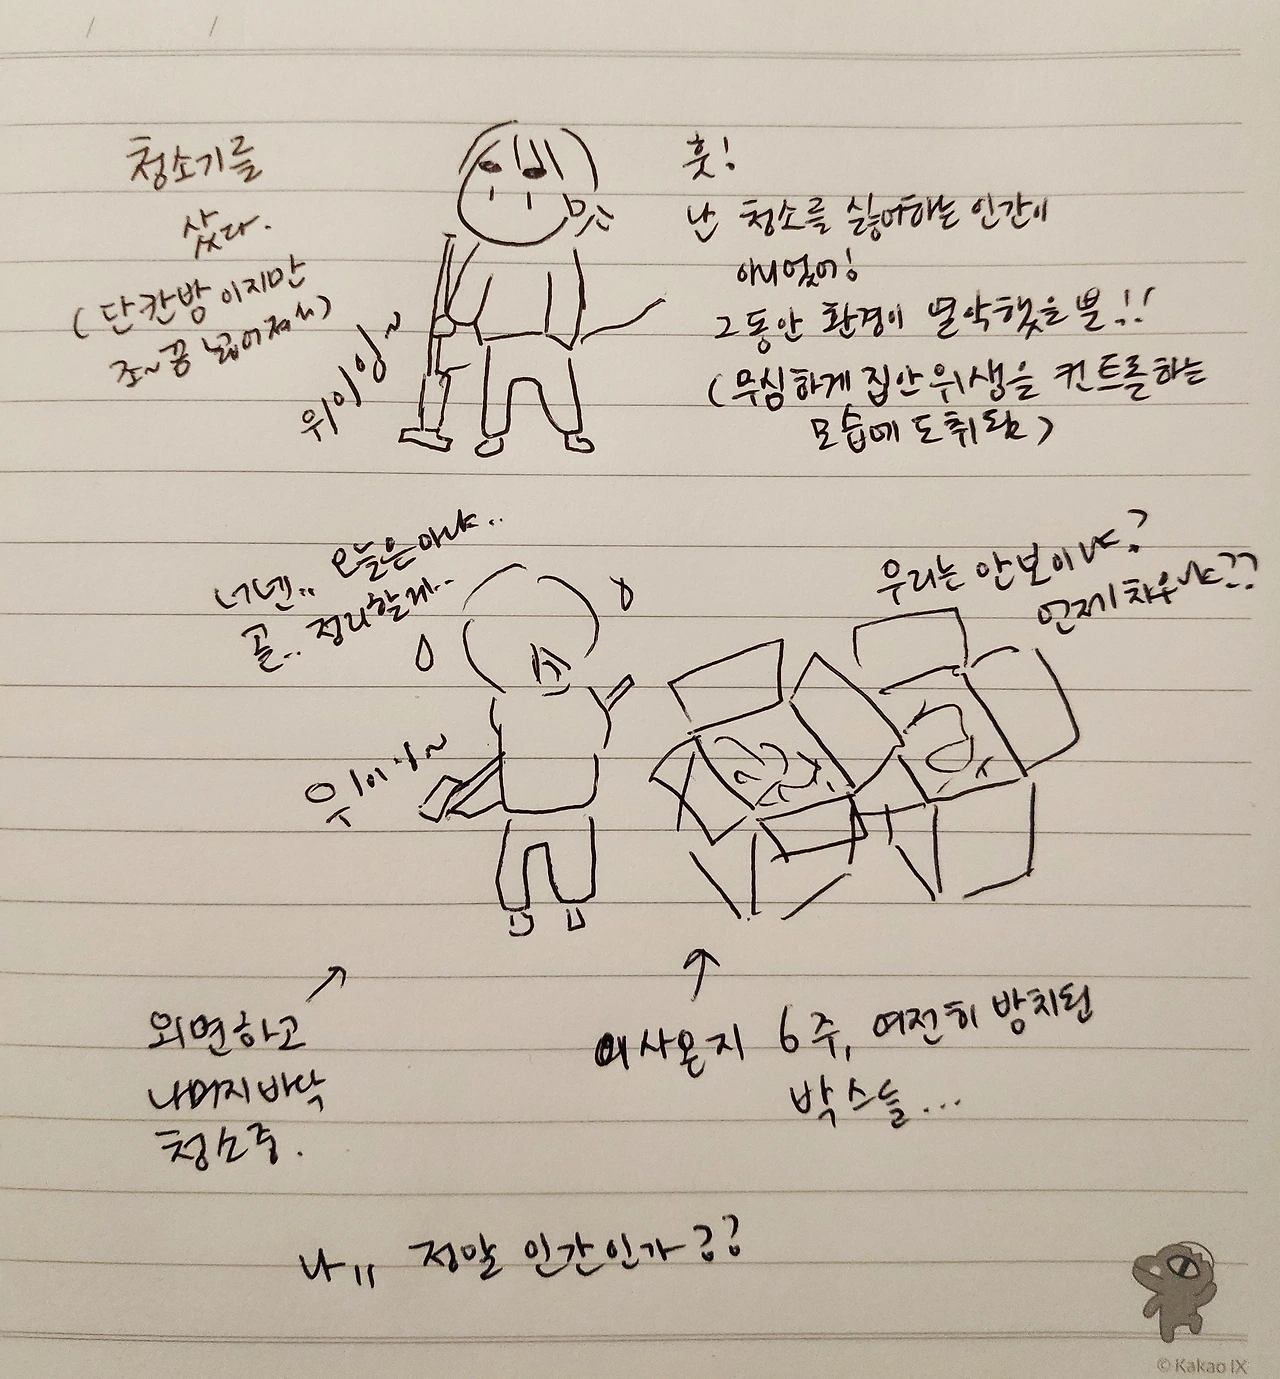 청소기를
샀다.
(단칸방이지만
조~끔 넓어져서)
위이잉~
훗!
난 청소를 싫어하는 인간이
아니였어!
그동안 환경이 열악했을 뿐!!
(무심하게 집안 위생을 컨트롤하는
모습에 도취됨)
너넨.. 오늘은 아냐..
곧.. 정리할게..
우리는 안보이냐?
언제 치우냐??
위이잉~
외면하고
나머지 바닥
청소중.
이사온지 6주, 여전히 방치된
박스들...
나,, 정말 인간인가??
© Kakao IX